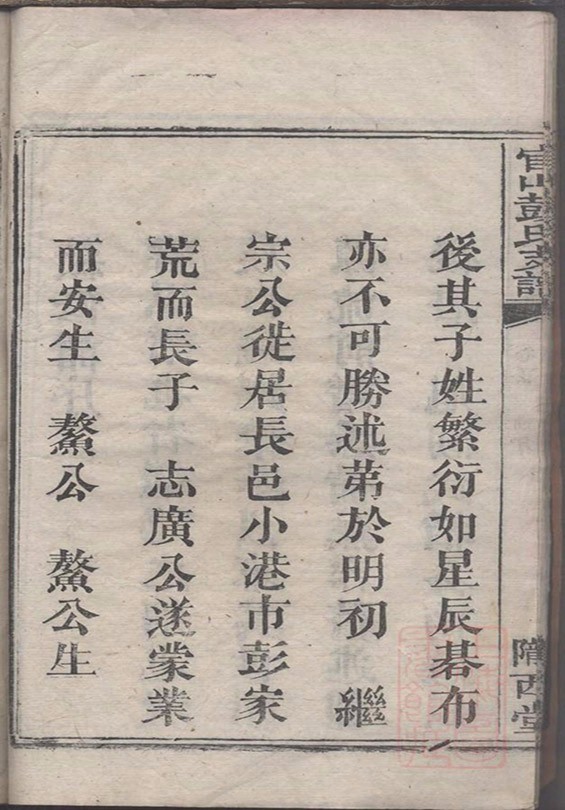 官山彭氏支譜
隴西堂
後其子姓繁衍如星辰碁布
亦不可勝述第於明初 繼
宗公徙居長邑小港市彭家
荒而長子 志廣公遂業業
而安生 鰲公 鰲公生